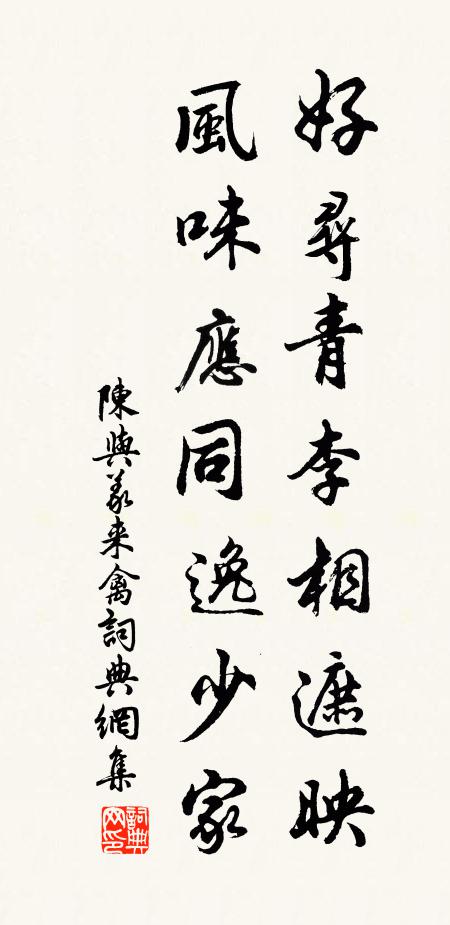 好尋青李相遮映
風味應同逸少家
陳與義来禽詞典網集
詞典网印